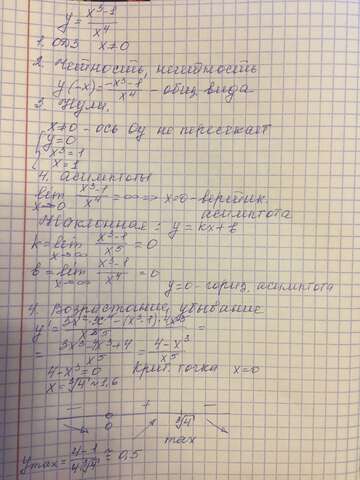 y = x³-1 / x⁴
1. ОДЗ x≠0
2. Четность, нечетность
y(-x) = -x³-1 / x⁴ - общ. вида
3. Нули.
x≠0 - ось Oy не пересекает
{ y=0
x³=1
x=1
4. асимптоты
lim x→0 x³-1 / x⁴ = ∞ => x=0 - вертик. асимптота
Наклонная: y = kx+b
k = lim x→∞ x³-1 / x⁵ = 0
b = lim x→∞ x³-1 / x⁴ = 0
y=0 - гориз. асимптота
4. Возрастание, убывание
= 3x³-4x³+4 / x⁵ = 4-x³ / x⁵
4-x³=0 Крит. точка x=0
x = ³√4 ≈ 1,6
- + -
0 ³√4
0 max
y max = 4-1 / 4³√4 ≈ 0,5